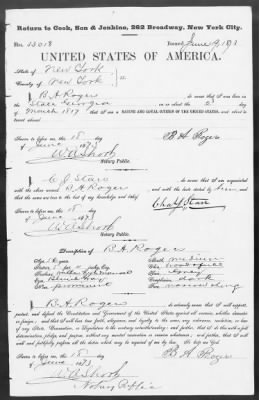 Return to Cook, Son & Jenkins, 262 Broadway, New York City.
No. 35018 Issued June 19, 1873
UNITED STATES OF AMERICA.
State of New York
County of New York } ss.
I B A Roger do swear that I was born in the
State Georgia on or about the 23 day
of March 1819 that I am a NATIVE AND LOYAL CITIZEN OF THE UNITED STATES, and about to
travel abroad.
Sworn to before me, this 18
of June 1873 B. A. Roger
W A Shook
Notary Public.
I C J Starr do swear that I am acquainted
with the above named B A Roger and with the facts stated by him, and
that the same are true to the best of my knowledge and belief.
Sworn to before me, this 18
of June 1873
W A Shook
Notary Public.
Description of B A Roger
Mouth medium
Hair Gray
Complexion dark
prominent
I B A Roger do solemnly swear that I will support,
protect, and defend the Constitution and Government of the United States against all enemies, whether domestic
or foreign; and that I will bear true faith, allegiance, and loyalty to the same, any ordinance, resolution, or law
of any State, Convention, or Legislature to the contrary notwithstanding; and further, that I do this with a full
determination, pledge, and purpose, without any mental reservation or evasion whatsoever; and further, that I will
well and faithfully perform all the duties which may be required of me by law. So help me God.
Sworn to before me, this 18 B. A. Roger
of June 1873
W A Shook
Notary Public